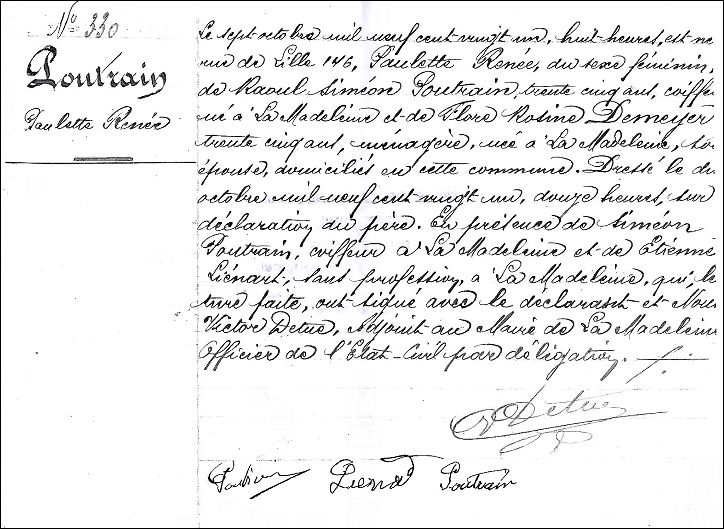 N° 330
Poutrain
Paulette Renée
Le sept octobre mil neuf cent vingt un, huit heures, est né
rue de Lille 146, Paulette Renée, du sexe féminin,
de Raoul Siméon Poutrain, trente cinq ans, coiffe
né à La Madeleine et de Flore Rosine Demeyer
trente cinq ans, ménagère, née à La Madeleine, so
épouse, domiciliés en cette commune. Dressé le
octobre mil neuf cent vingt un, douze heures, sur
déclaration du père. En présence de Siméon
Poutrain, coiffeur à La Madeleine et de Etienne
Liénart, sans profession, à La Madeleine, qui, lec
ture faite, ont signé avec le déclarant et Nous
Victor Detue, Adjoint au Maire de La Madeleine
Officier de l'Etat-Civil par délégation. ./.
VDetue
Poutrain Lienart Poutrain